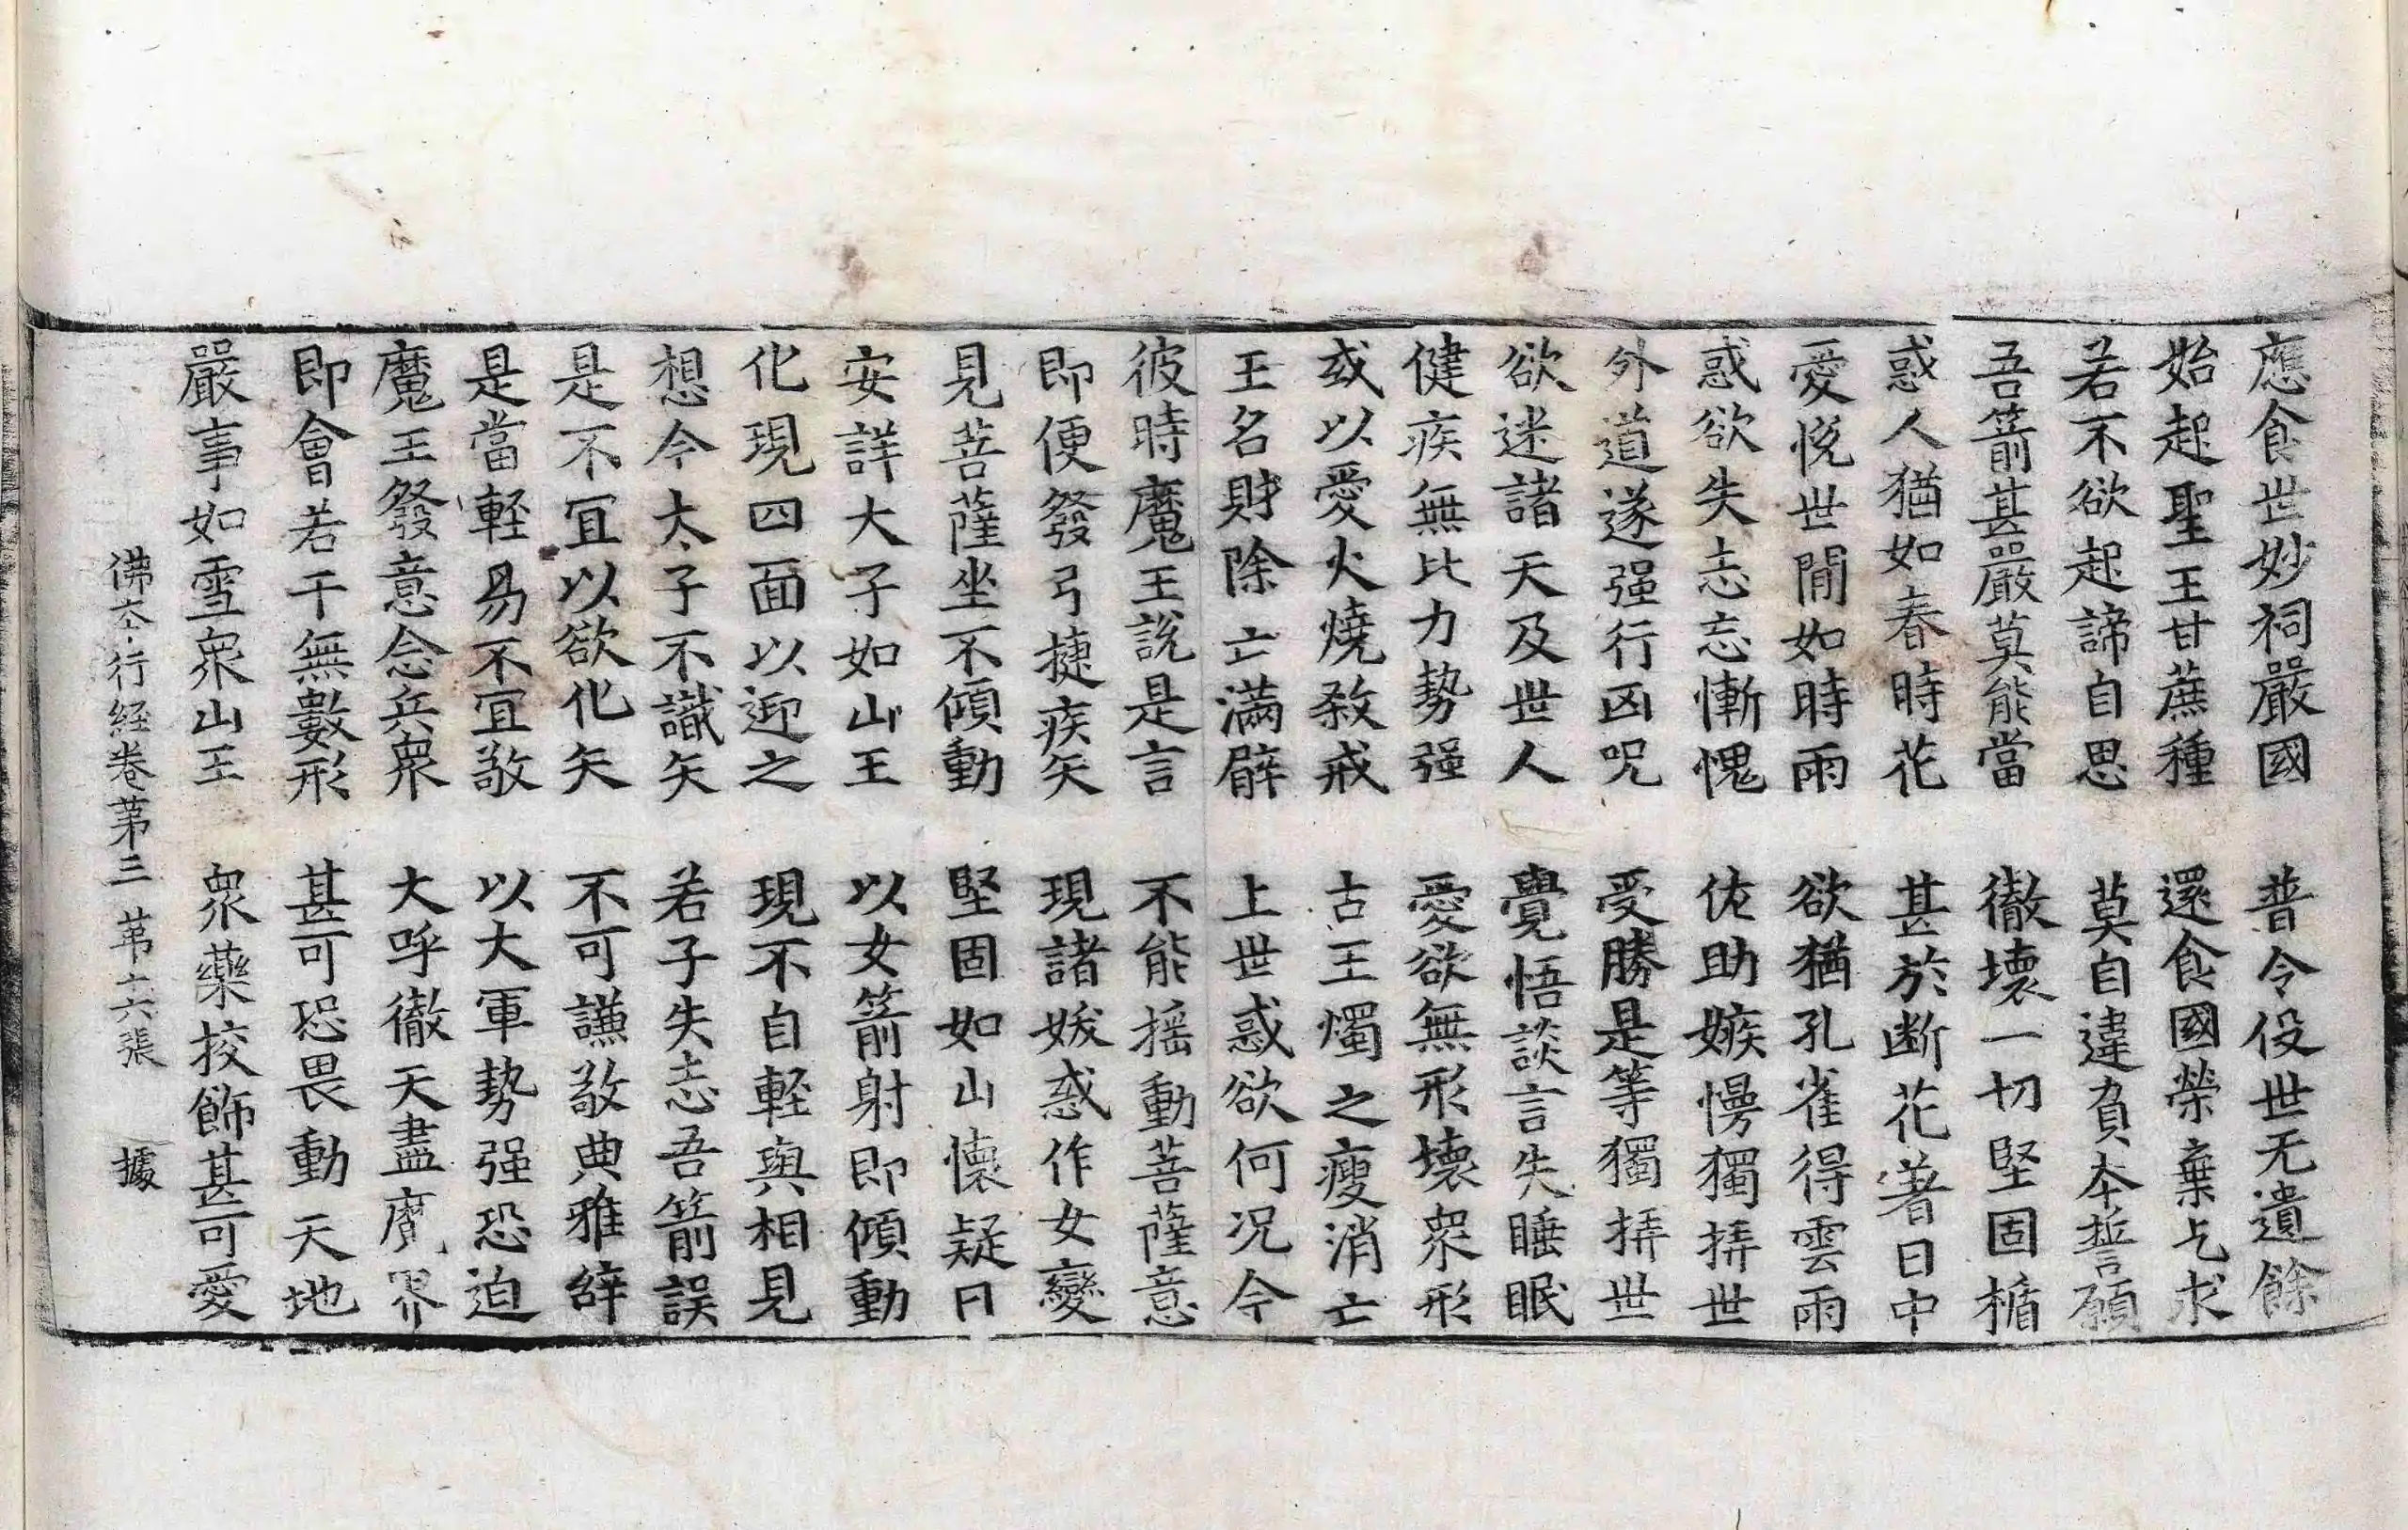 應食世妙祠嚴國 普令役世无遺餘
始起聖王甘蔗種 還食國榮棄乞求
若不欲起諦自思 莫自違負本誓願
吾箭甚嚴莫能當 徹壞一切堅固楯
惑人猶如春時花 甚於斷花著日中
愛悅世間如時雨 欲猶孔雀得雲雨
惑欲失志忘慚愧 佐助嫉慢獨挊世
外道遂强行凶呪 受勝是等獨挊世
欲迷諸天及世人 覺悟談言失睡眠
健疾無比力勢强 愛欲無形壞衆形
或以愛火燒敎戒 古王燭之瘦消亡
王名財除亡滿辟 上世惑欲何况今
彼時魔王說是言 不能搖動菩薩意
即便發弓揵疾矢 現諸妭惑作女變
見菩薩坐不傾動 堅固如山懷疑曰
安詳大子如山王 以女箭射即傾動
化現四面以迎之 現不自輕與相見
想今太子不識矢 若子失志吾箭誤
是不冝以欲化矢 不可謙敬典雅辝
是當輕易不冝敬 以大軍勢强恐迫
魔王發意念兵衆 大呼徹天盡魔界
即會若干無數形 甚可恐畏動天地
嚴事如雪衆山王 衆藥挍飾甚可愛
佛夲行經卷苐三 苐十六張 據